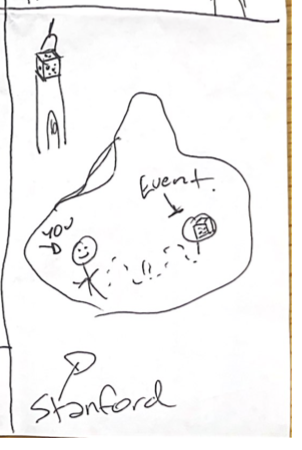 Event.
you
Stanford